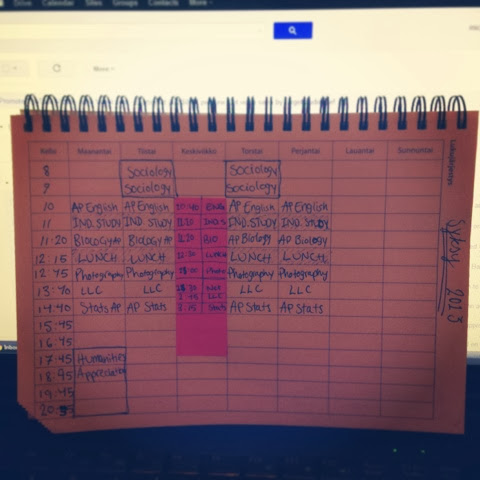 Drive Calendar Sites Groups Contacts More
More
Kello Maanantai Tiistai Keskiviikko Torstai Perjantai Lauantai Sunnuntai
Lukujärjestys
Syksy 2013
8 Sociology Sociology
9 Sociology Sociology
10 AP English AP English 10:40 ENG AP English AP English
11 IND. STUDY IND. STUDY IND. STUDY IND. STUDY
11:20 Biology AP Biology AP BIO AP Biology AP Biology
12:15 LUNCH LUNCH LUNCH LUNCH LUNCH
12:45 Photography Photography Photo Photography Photography
13:40 LLC LLC LLC LLC LLC
14:40 Stats AP AP Stats Stats AP Stats AP Stats
15:45
16:45
17:45 Humanities
18:45 Appreciation
19:45